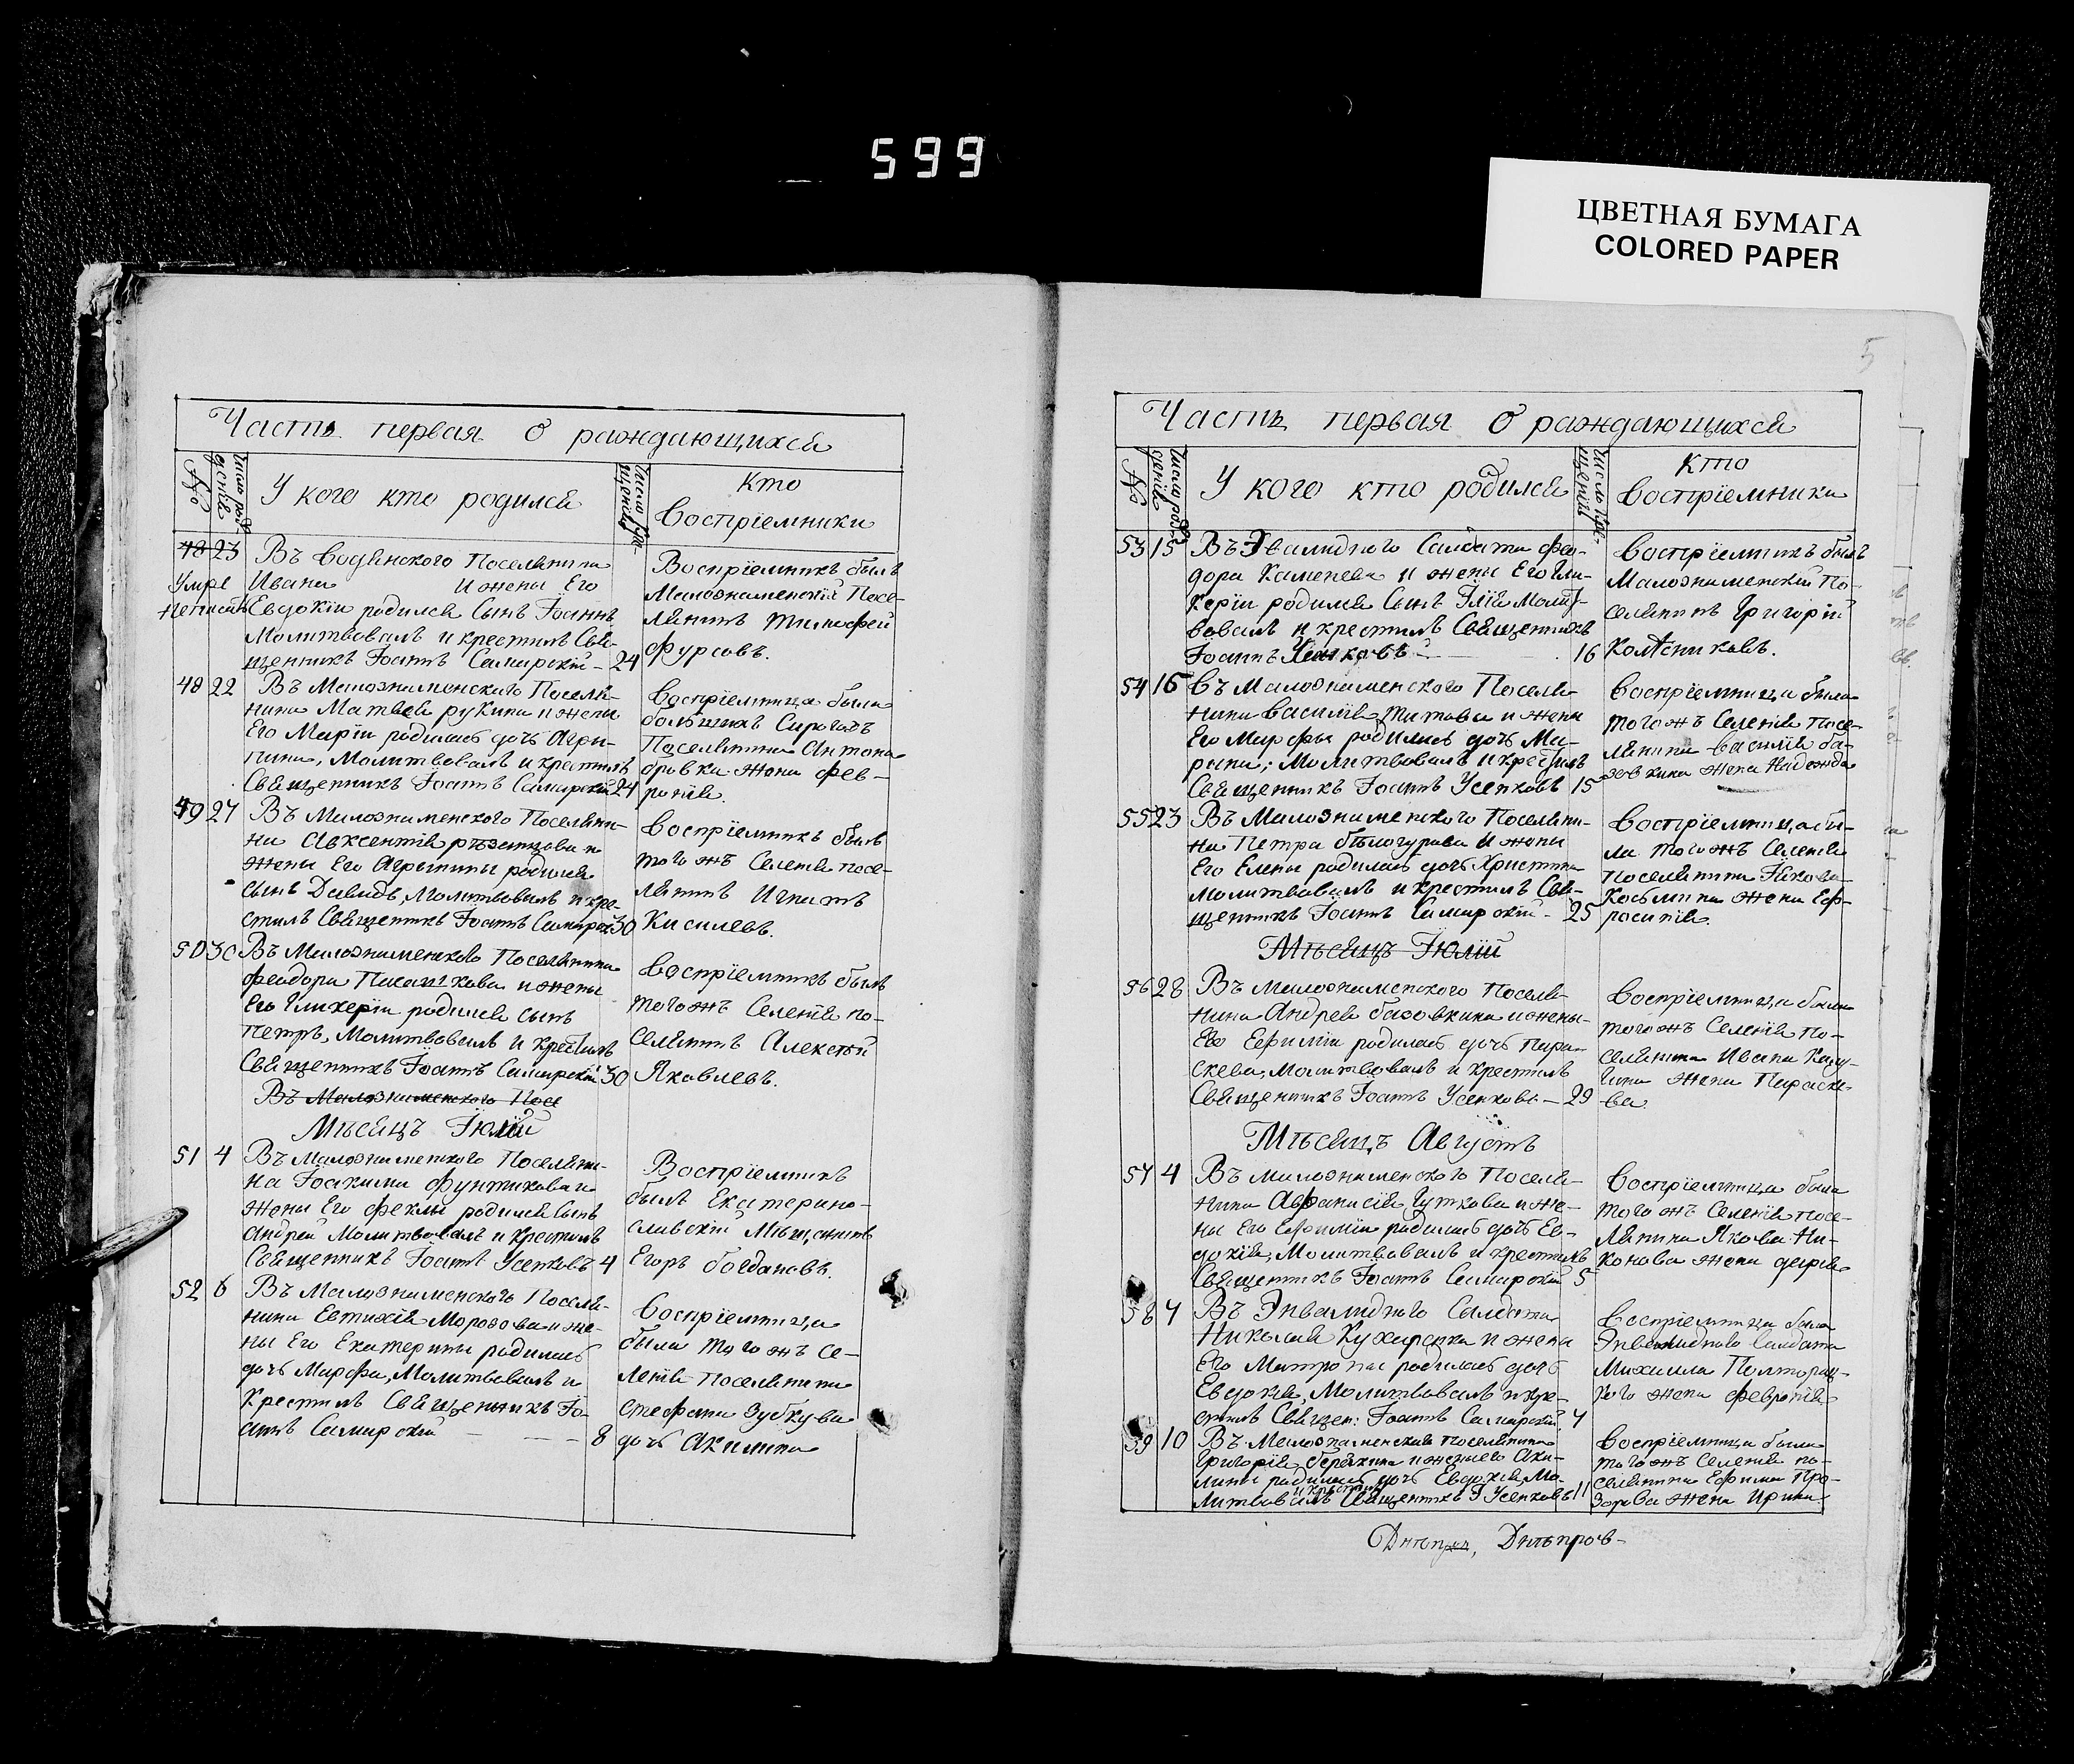 599
ЦВЕТНАЯ БУМАГА
COLORED PAPER
5
Часть первая о раждающихся
№
число рождения
У кого кто родился
число крещения
Кто
Воспріемники
48 23 Въ Водянского Поселянина
Умре Ивана И жены Его
Евдокіи родился Сынъ Іоаннъ
Молитвовалъ и крестилъ Свя-
щенникъ Іоаннъ Самарскій – 24
Воспріемникъ былъ
Малознаменскій Посе-
лянинъ Тимофей
Фурсовъ.
48 22 Въ Малознаменского Поселя-
нина Матвея рукина и жены
Его Маріи родилась дочь Агри-
пина, Молитвовалъ и крестилъ
Священникъ Іоаннъ Самарскій 24
Воспріемница была
большихъ Сирогозъ
Поселянина Антона
бровка жена Фев-
ронія.
49 27 Въ Малознаменского Поселяни-
на Авксентія рѣзанцова и
жены Его Агрипины родился
сынъ Давидъ, Молитвовалъ и кре-
стилъ Священникъ Іоаннъ Самарскій 30
Воспріемникъ былъ
того жъ Селенія посе-
лянинъ Игнатъ
Киселевъ.
50 30 Въ Малознаменского Поселянина
Феодора Пикалкова и жены
Его Гликеріи родился сынъ
Петръ, Молитвовалъ и крестилъ
Священникъ Іоаннъ Самарскій 30
Воспріемникъ былъ
того жъ Селенія по-
селянинъ Алексѣй
Яковлевъ.
Въ Малознаменского Посе
Мѣсяцъ Іюлій
51 4 Въ Малознаменского Поселяни-
на Іоакима Фунтикова и
жены Его Феклы родился Сынъ
Андрей Молитвовалъ и крестилъ
Священникъ Іоаннъ Усенковъ 4
Воспріемникъ
былъ Екатерино-
славскій Мѣщанинъ
Егоръ богдановъ.
52 6 Въ Малознаменского Поселя-
нина Евтихія Морозова и же-
ны Его Екатерины родилась
дочь Марфа, Молитвовалъ и
Крестилъ Священникъ Іо-
аннъ Самарскій – – – 8
Воспріемница
была того жъ Се-
ленія Поселянина
Стефана Зубкува
дочь Акилина
Часть первая О раждающихся
№
число рождения
У кого кто родился
число крещеній
Кто
Воспріемники
53 15 Въ Эвалидного Салдата Фео-
дора Каменева и жены Его Гли-
керіи родился Сынъ Ілія Молит-
вовалъ и крестилъ Священникъ
Іоаннъ Усенковъ – 16
Воспріемникъ былъ
Малознаменскій По-
селянинъ Григорій
Колѣсниковъ.
54 15 Въ Малознаменского Поселя-
нина Василія Титова и жены
Его Марфы родилась дочь Ма-
рина; Молитвовалъ и крестилъ
Священникъ Іоаннъ Усенковъ 15
Воспріемница была
того жъ Селенія посе-
лянина Василія ба-
зовкина жена Надежда
55 23 Въ Малознаменского Поселяни-
на Петра бѣлогурова И жены
Его Елены родилась дочь Христина
Молитвовалъ и крестилъ Свя-
щенникъ Іоаннъ Самарскій – 25
Воспріемница бы-
ла того жъ Селенія
поселянина Якова
Косьмина жена Еф-
росинія.
Мѣсяцъ Іюлій
56 28 Въ Малознаменского Поселя-
нина Андрея базовкина и жены
Его Ефиміи родилась дочь Пара-
скева, Молитвовалъ и крестилъ
Священникъ Іоаннъ Усенковъ – 29
Воспріемница была
того жъ Селенія По-
селянина Ивана
жена Параске-
ва
Мѣсяцъ Августъ
57 4 Въ Малознаменского Поселя-
нина Афанасія Гуткова и же-
ны Его Ефиміи родилась дочь Ев-
докія, Молитвовалъ и крестилъ
Священникъ Іоаннъ Самарскій 5
Воспріемница была
того жъ Селенія посе-
лянина Якова Ни-
конова жена дарія
58 7 Въ Энвалидного Салдата
Николая Кухаренка и жены
Его Матроны родилась дочь
Евдокія, Молитвовалъ и кре-
стилъ Священ: Іоаннъ Самарскій 7
Воспріемница была
Энвалидного Салдата
Михаила Полторац-
кого жена Февронія
59 10 Въ Малознаменскаго поселянина
Григорія и жены его Аки-
лины родилась дочь Евдокія, Мо-
литвовалъ и крестилъ Священникъ І Усенковъ 11
Воспріемница была
того жъ Селенія по-
селянина Ефима Про-
зорова жена Ирина
Днѣпра, Днѣпров-